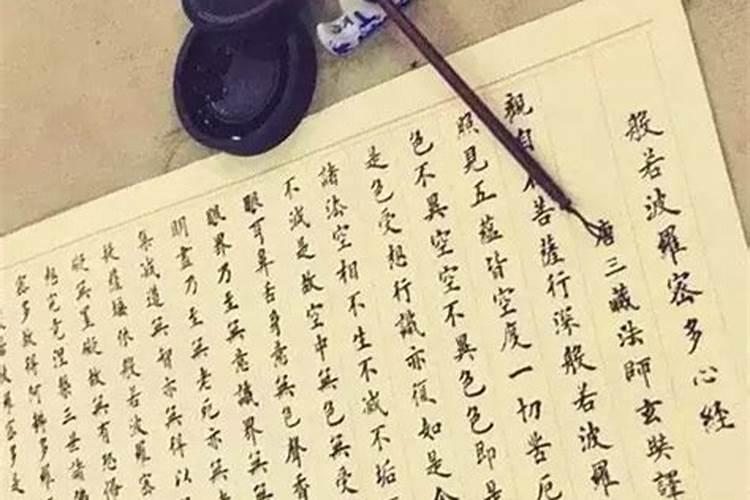 般若波羅密多心經
唐三藏法師玄奘譯
自菩薩行深般若波羅
照見五蘊皆空度一切苦厄
色不異空空不異色色即是
是色受想行識亦復如是
諸法空相不生不滅不垢
不減是故空中無色無受
眼耳鼻舌身意無色聲香
眼界乃至無意識界無
明盡乃至無老死亦無
集滅道無智亦無得以
薩埵依般若波羅密
無罣礙故無有恐怖
想究竟涅槃三世諸
密多故得阿耨多羅
般若波羅密多是